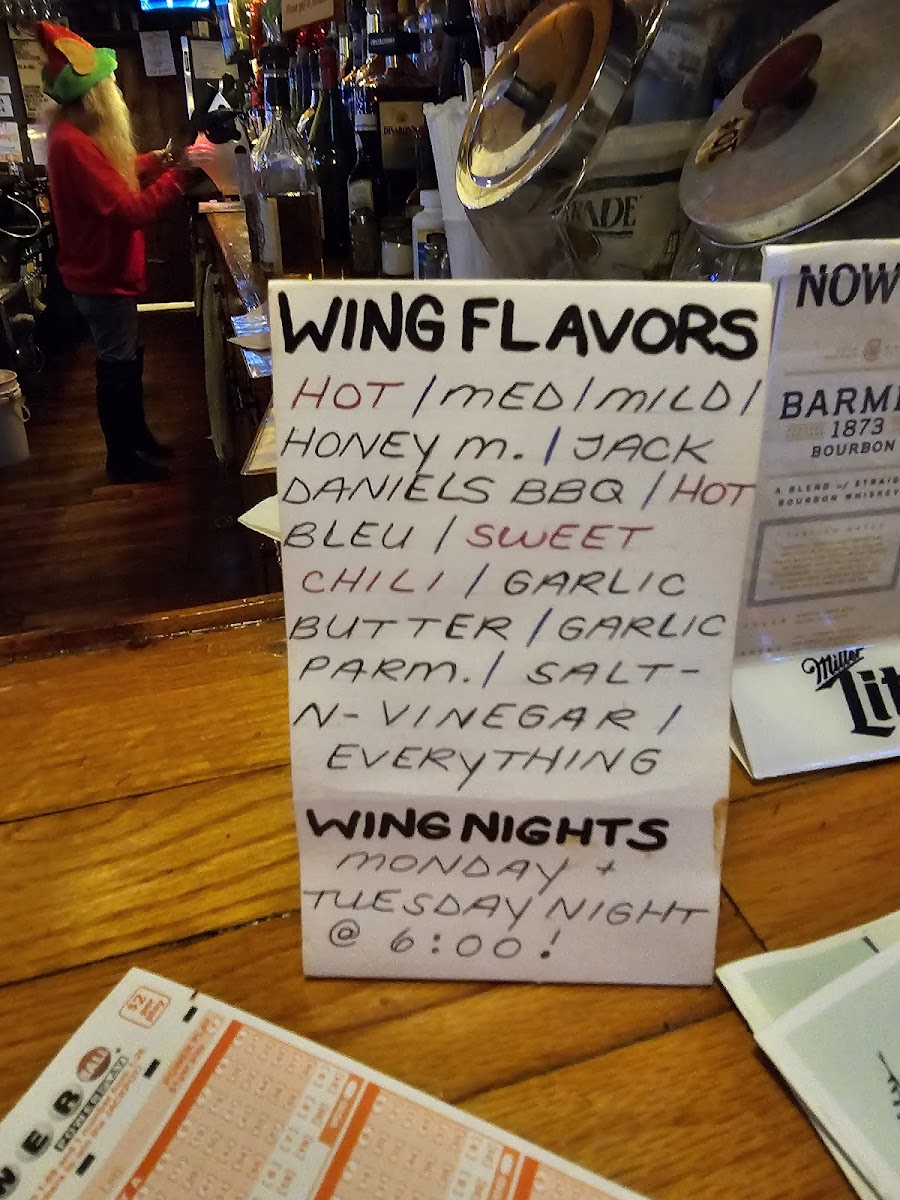 WING FLAVORS
HOT / MED / MILD /
HONEY M. / JACK
DANIELS BBQ / HOT
BLEU / SWEET
CHILI / GARLIC
BUTTER / GARLIC
PARM. / SALT-
N-VINEGAR /
EVERYTHING
WING NIGHTS
MONDAY +
TUESDAY NIGHT
@ 6:00!
NOW
BARM
1873
BOURBON
A BLEND of STRAIG
BOURBON WHISKEY
Miller
Lit
DISARONNO
ADE
WER
POWERPLAY
$2
PER
PLAY
A